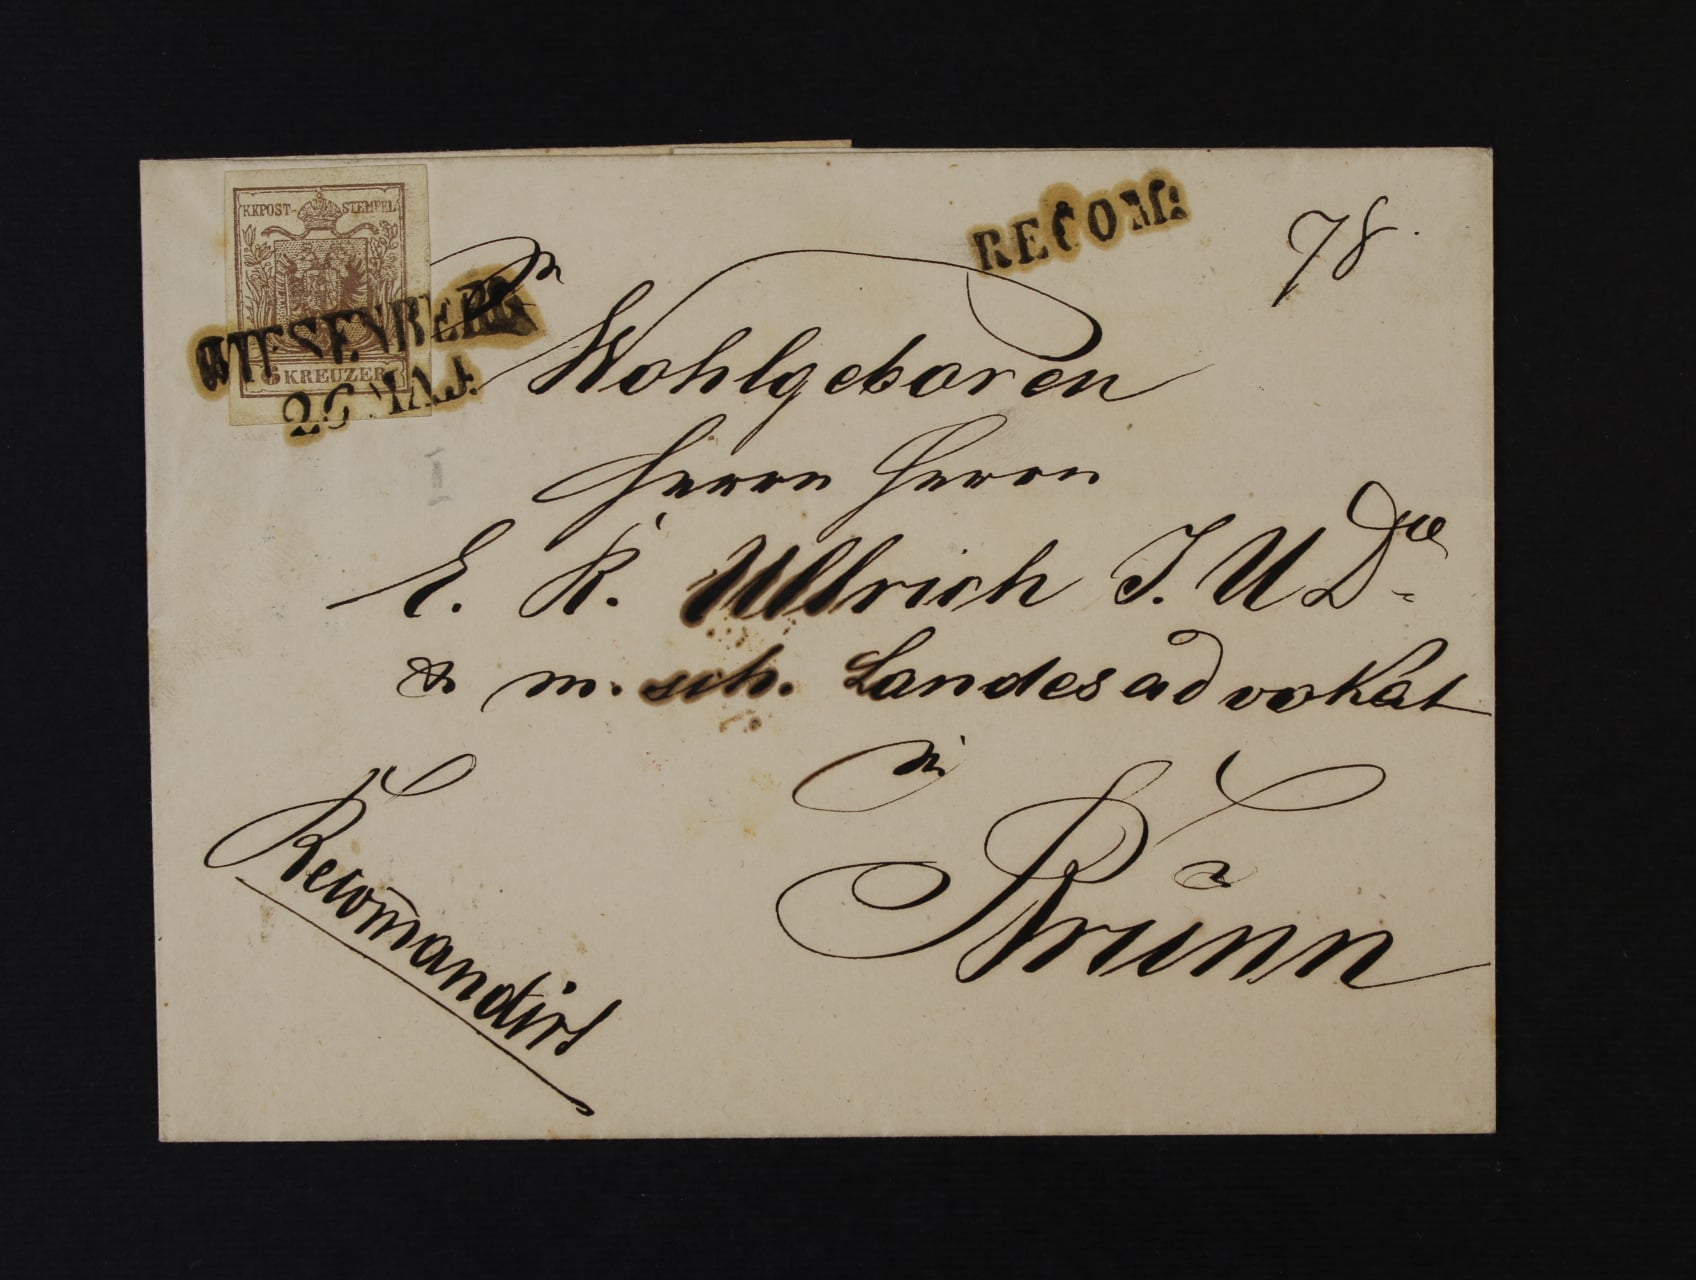 KKPOST-STEMPEL
6 KREUZER
WIESENBERG
26 MAJ.
RECOM:
78.
Wohlgeboren
Herrn Herrn
E. K. Ullrich J. U. Dce
& m. sch. Landesadvokat
in
Brünn
Recomandirt